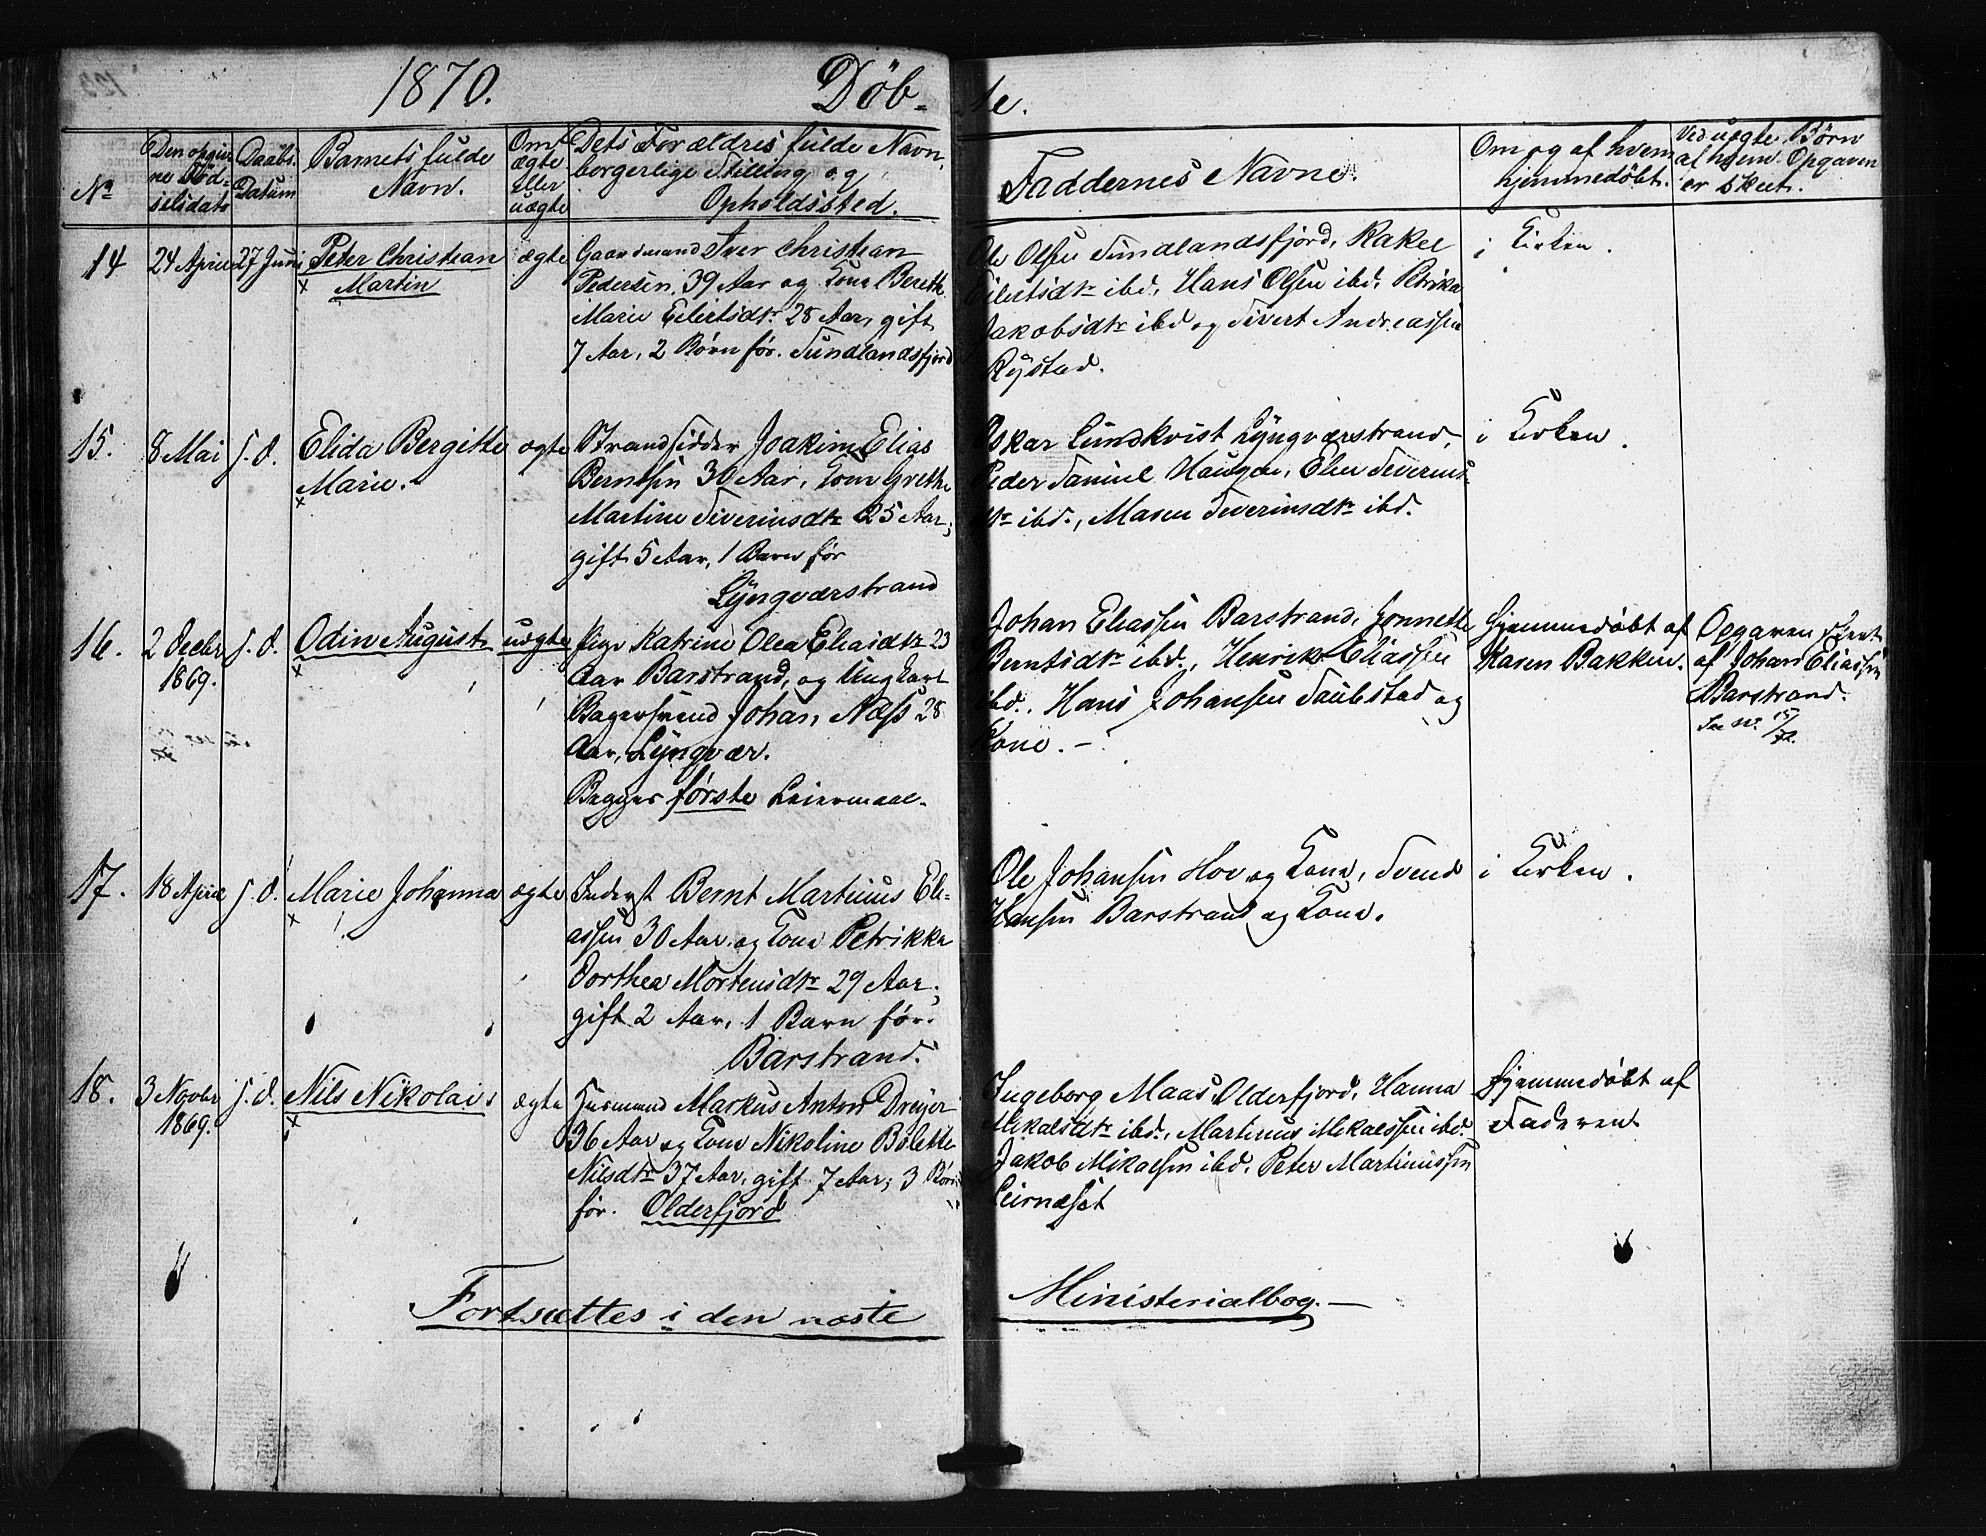 1870. Döb- te.
No
Den opgiv-
ne Föd-
selsdato
Daabs-
Datum
Barnets fulde
Navn.
Om
ægte
eller
uægte
Dets Forældres fulde Navn,
borgerlige Stilling og
Opholdssted.
Faddernes Navne.
Om og af hvem
hjemmedöbt.
Ved uægte Börn
af hvem Opgaven
er skeet.
14
24 April
27 Juni
Peter Christian
Martin
ægte
Gaardmand Iver Christian
Pedersen, 39 Aar og Kone Bereth
Marie Eilertsdtr 28 Aar, gift
7 Aar, 2 Börn för. Sundlandsfjord
Ole Olsen Sundlandsfjord, Rakel
Eilertsdtr ibd, Hans Olsen ibd, Petrika
Jakobsdtr ibd og Sivert Andreassen
Rystad.
i Kirken.
15.
8 Mai
s. d.
Elida Bergitte
Marie.
ægte
Strandsidder Joakim Elias
Berntsen 30 Aar, Kone Grethe
Martine Severinsdtr 25 Aar,
gift 5 Aar, 1 Barn för
Lyngværstrand
Oskar Lundkvist Lyngværstrand,
Peder Samuel Haugen, Elen Severins-
dtr ibd., Maren Severinsdtr ibd.
i Kirken.
16.
2 Decbr
1869.
s. d.
Odin August
uægte
Pige Katrine Olea Eliasdtr 23
Aar Barstrand, og Ungkarl
Bagersvend Johan Næss 28
Aar, Lyngvær.
Begges förste Leiermaal.
Johan Eliassen Barstrand, Jonnette
Berntsdtr ibd., Henrik Eliassen
ibd., Hans Johansen Saubstad og
Kone. –
Hjemmedöbt af
Karen Bakken.
Opgaven skeet
af Johan Eliassen
Barstrand.
Se No. 15/72.
17.
18 April
s. d.
Marie Johanna
ægte
Inderst Bernt Martinus Eli-
assen 30 Aar og Kone Petrikka
Dorthea Mortensdtr 29 Aar,
gift 2 Aar, 1 Barn för.
Barstrand.
Ole Johansen Hov og Kone, Svend
Hansen Barstrand og Kone.
i Kirken.
18.
3 Novbr
1869.
s. d.
Nils Nikolai
ægte
Husmand Markus Anton Dreyer
36 Aar og Kone Nikoline Bolette
Nilsdtr 37 Aar, gift 7 Aar, 3 Börn
för. Olderfjord
Ingeborg Maas Olderfjord, Hanna
Mikalsdtr ibd., Martinus Mikalsen ibd.
Jakob Mikalsen ibd, Peter Martinussen
Leirnæset
Hjemmedöbt af
Faderen
Fortsættes i den næste Ministerialbog. –